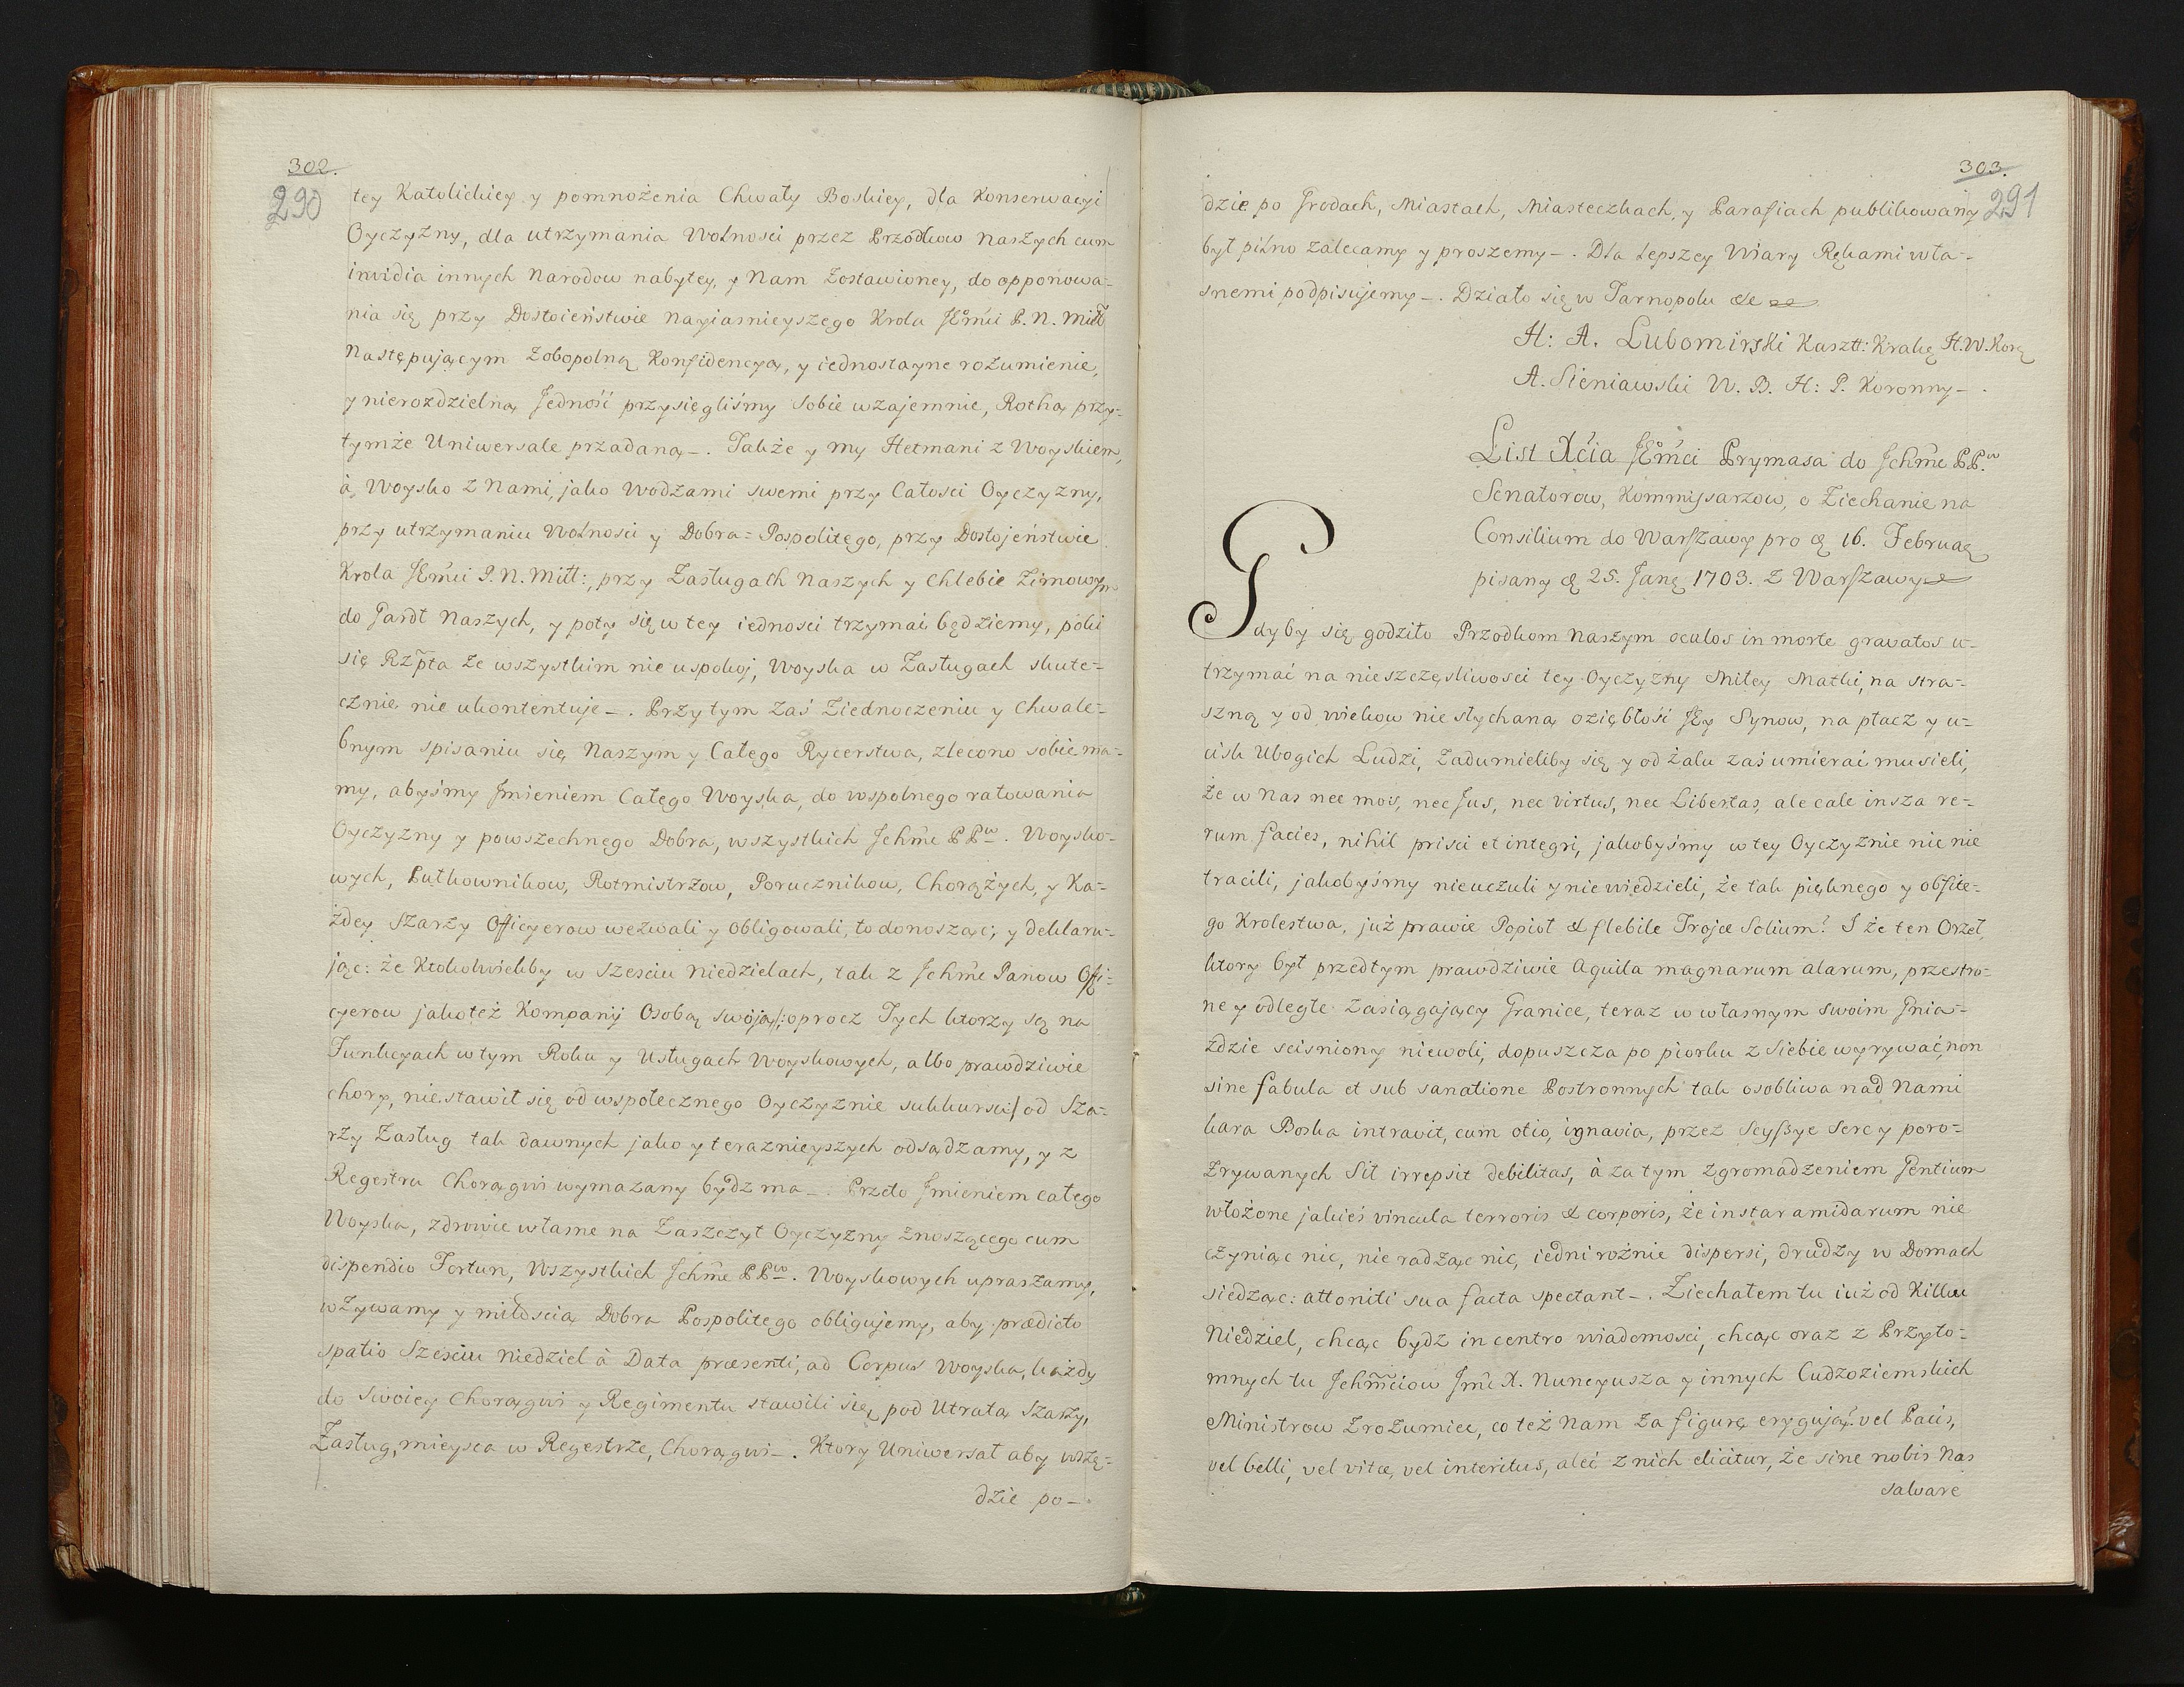 302.
290
tey Katolickiey y pomnożenia Chwały Boskiey, dla Konserwacyi
Oyczyzny, dla utrzymania Wolnosci przez Przodkow naszych cum
invidia innych Narodow nabytey, y Nam zostawioney, do opponowa-
nia się przy Dostoieństwie Nayiasnieyszego Krola JEmci P. N. Miłł
Następującym Zobopolną Konfidencyą, y iednostayne rozumienie,
y nierozdzielną Jedność przysięgliśmy Sobie wzajemnie, Rothą przy-
tymże Uniwersale przadaną-. Także y my Hetmani z Woyskiem,
à Woysko z Nami, jako Wodzami swemi przy Całosci Oyczyzny,
przy utrzymaniu Wolnosci y Dobra-Pospolitego, przy Dostojeństwie
Krola JEmci P. N. Miłł:, przy Zasługach Naszych y Chlebie Zimowym
do Gardł Naszych, y poty się w tey iednosci trzymać będziemy, póki
się Rzpta ze wszystkim nie uspokoj, Woyska w Zasługach skute-
cznie nie ukontentuje-. Przytym zaś Ziednoczeniu y Chwale-
bnym spisaniu się Naszym y Całego Rycerstwa, zlecono sobie ma-
my, abyśmy Jmieniem Całego Woyska, do wspolnego ratowania
Oyczyzny y powszechnego Dobra, wszystkich Jchmc PPw. Woysko-
wych, Pułkownikow, Rotmistrzow, Porucznikow, Chorążych, y Ka-
żdey Szarży Officyerow wezwali y obligowali, to donosząc, y deklaru-
jąc: że Ktokolwiekby w Szesciu Niedzielach, tak z Jchmc Panow Offi-
cyerow jako też Kompanij Osobą swoją /:oprocz Tych ktorzy są na
Funkcyach w tym Roku y Usługach Woyskowych, albo prawdziwie
chory, nie stawił się od wspołecznego Oyczyznie sukkursu/ od Sza-
rży Zasług tak dawnych jako y teraznieyszych odsądzamy, y z
Regestru Chorągwi wymazany bydz ma-. Przeto Jmieniem całego
Woyska, zdrowie własne na Zaszczyt Oyczyzny znoszącego cum
dispendio Fortun, Wszystkich Jchmc PPw. Woyskowych upraszamy,
wzywamy y miłoscią Dobra Pospolitego obligujemy, aby prædicto
spatio Szesciu Niedziel à Data præsenti, ad Corpus Woyska, każdy
do swoiey Chorągwi y Regimentu stawili się, pod Utratą Szarży,
Zasług, mieysca w Regestrze, Chorągwi-. Ktory Uniwersał aby wszę-
dzie po-
303.
291
dzie po Grodach, Miastach, Miasteczkach, y Parafiach publikowany
był pilno zalecamy y proszemy-. Dla lepszey Wiary Rękami wła-
snemi podpisujemy-. Działo się w Tarnopolu
H: A. Lubomirski Kasztt: Krakę H. W. Korę
A. Sieniawski W. B. H: P. Koronny-
List Xcia JEmci Prymasa do Jchmc PP.w
Senatorow, Kommissarzow, o Ziechanie na
Consilium do Warszawy pro 16. Februaę
pisany 25. Janę 1703. z Warszawy
Gdyby się godziło Przodkom Naszym oculos in morte gravatos u-
trzymać na nieszczęsliwosci tey Oyczyzny Miłey Matki, na stra-
szną y od wiekow niesłychaną oziębłość JEy Synow, na płacz y u-
cisk Ubogich Ludzi, Zadumieliby się y od żalu zaś umierać musieli,
że w Nas nec mos, nec Jus, nec virtus, nec Libertas, ale cale insza re-
rum facies, nihil prisci et integri, jakobyśmy w tey Oyczyznie nic nie
tracili, jakobyśmy nieuczuli y niewiedzieli, że tak pięknego y obfite-
go Krolestwa, już prawie Popioł & flebile Trojæ Solium? I że ten Orzeł,
ktory był przedtym prawdziwie Aquila magnarum alarum, przestro-
ne y odległe zasiągający Granice, teraz w własnym swoim Gnia-
zdzie scisniony niewoli, dopuszcza po piorku z siebie wyrywać, non
sine fabula et sub sanatione Postronnych tak osobliwa nad Nami
kara Boska intravit, cum otio, ignavia, przez Scyssye Serc y poro-
zrywanych Sił irrepsit debilitas, à za tym zgromadzeniem Gentium
włożone jakieś vincula terroris & corporis, że instar amidarum nie
czyniąc nic, nie radząc nic, iedni rożnie dispersi, drudzy w Domach
siedząc: attoniti sua facta spectant-. Ziechałem tu iuż od Kilku
Niedziel, chcąc bydz in centro wiadomosci, chcąc oraz z Przyto-
mnych tu Jchmciow Jmc X. Nuncyusza y innych Cudzoziemskich
Ministrow zrozumiec, co też Nam za figurę erygują? vel Pacis,
vel belli, vel vitæ, vel interitus, aleć z nich elicitur, że sine nobis Nas
salvare